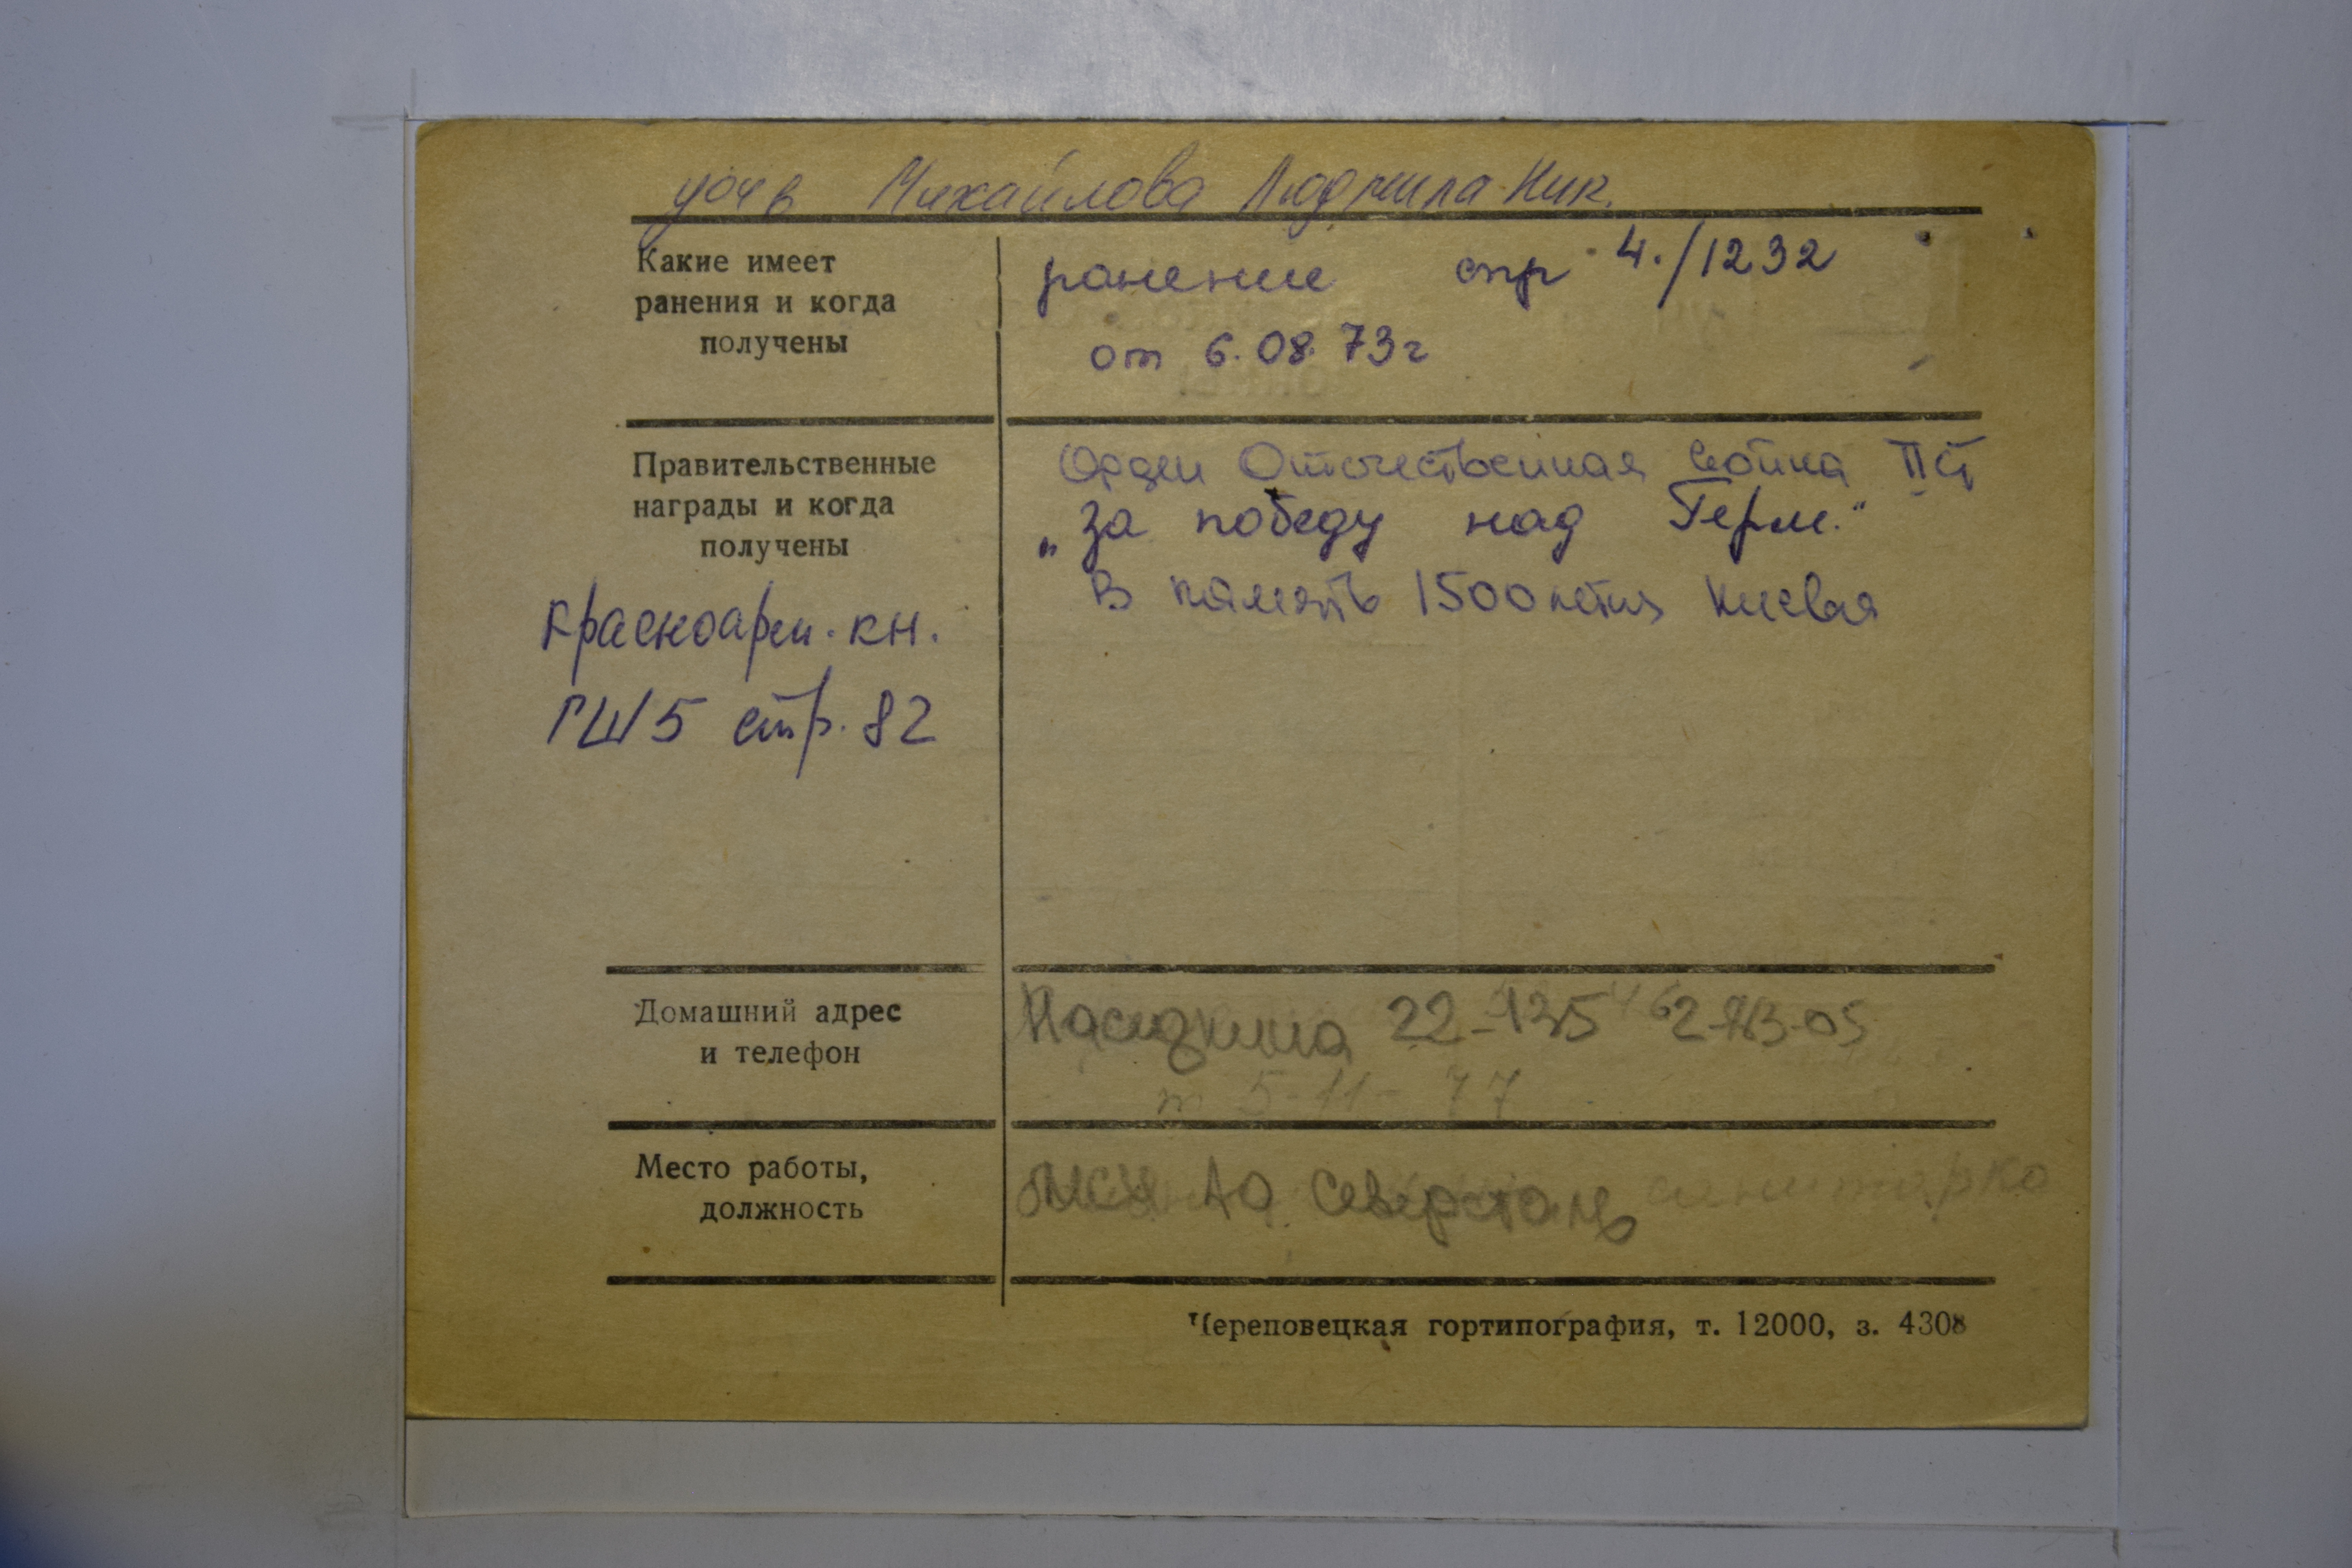 дочь Михайлова Людмила Ник.
Какие имеет
ранения и когда
получены
ранение спр 4./1232
от 6.08.73г
Правительственные
награды и когда
получены
Орден Отечественная война II ст
„За победу над Герм."
В память 1500летия Киевая
Красноарм. кн.
ГШ5 стр. 82
Домашний адрес
и телефон
Наседкина 22-135
т 5-11-77
Место работы,
должность
АО Северсталь санитарка
Череповецкая гортипография, т. 12000, з. 4308